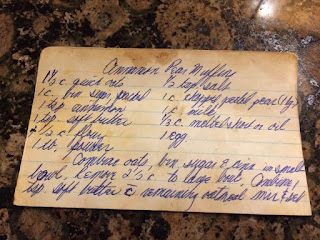 Cinnamon Pear Muffins
1½ c quick oats
c. brn sugar packed
1 tsp. cinnamon
1 tsp. soft butter
½ c flour
powder
½ tsp salt
1 c chopped peeled pear (1 lg)
1 c milk
melted short or oil
1 egg.
Combine oats, brn sugar & cinn in small
bowl. Remove c to large bowl. Combine
soft butter c̄ remaining oatmeal mix & set